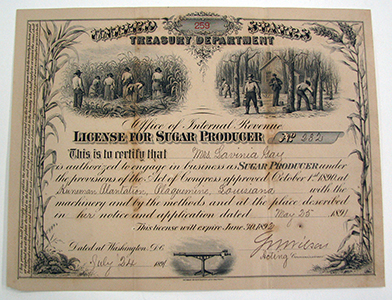 UNITED STATES
259
TREASURY DEPARTMENT
Office of Internal Revenue
LICENSE FOR SUGAR PRODUCER No
This is to certify that Mrs Lavinia Gay
is authorized to engage in business as SUGAR PRODUCER under
the provisions of the Act of Congress approved October 1st 1890, at
Plantation, Plaquemine, Louisiana with the
machinery and by the methods and at the place described
in her notice and application dated May 25 1891
This license will expire June 30, 1892
Dated at Washington, D.C. Wilson
July 24 1891 Acting Commissioner